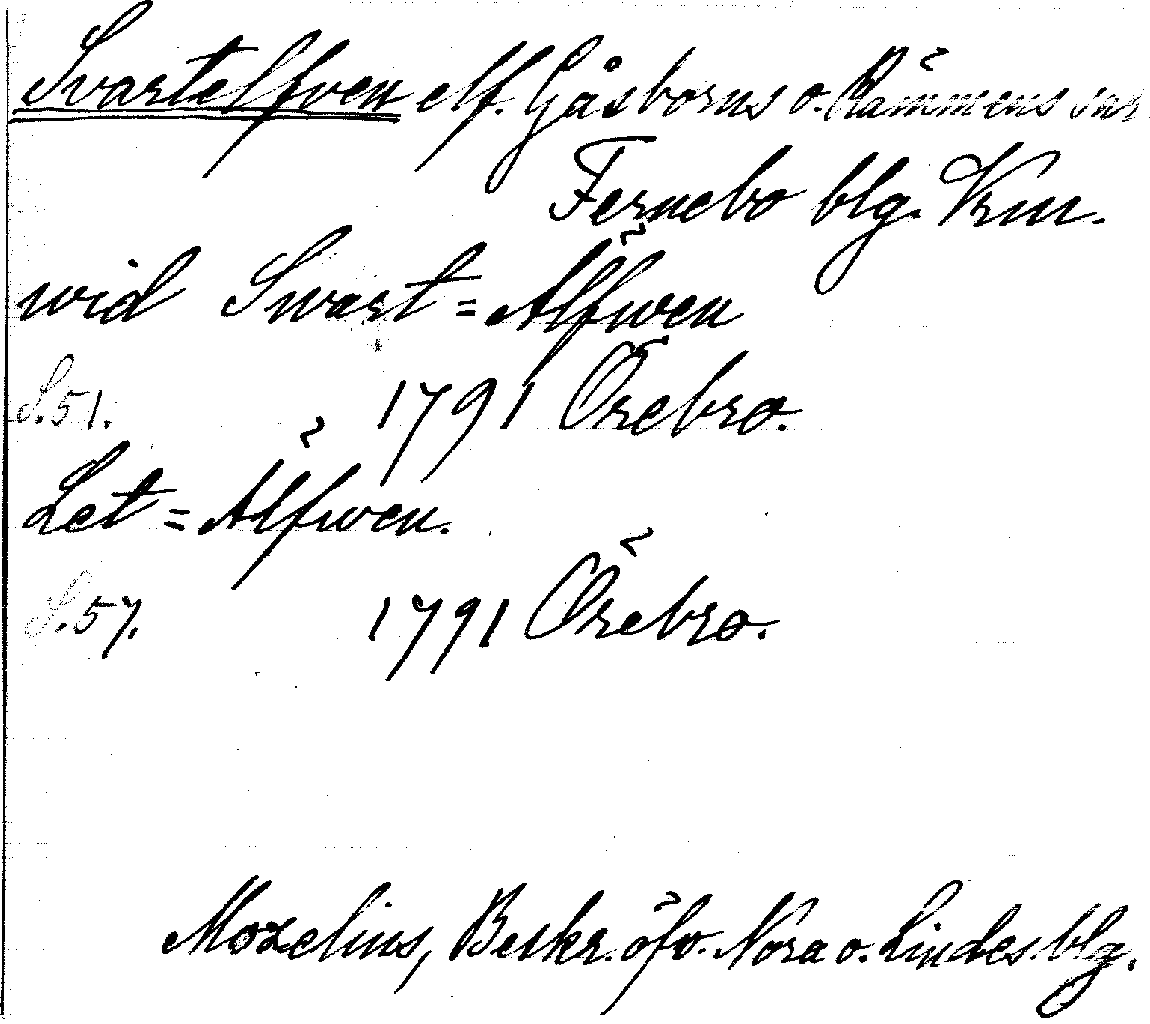 Svartelfven elf. Gåsborns o. Rämmens snr
Fernebo blg. Vrm.
wid Swart=Älfwen
S.51. 1791 Örebro.
Let=Älfwen.
S.57. 1791 Örebro.
Moxelius, Beskr. öfv. Nora o. Lindes blg.